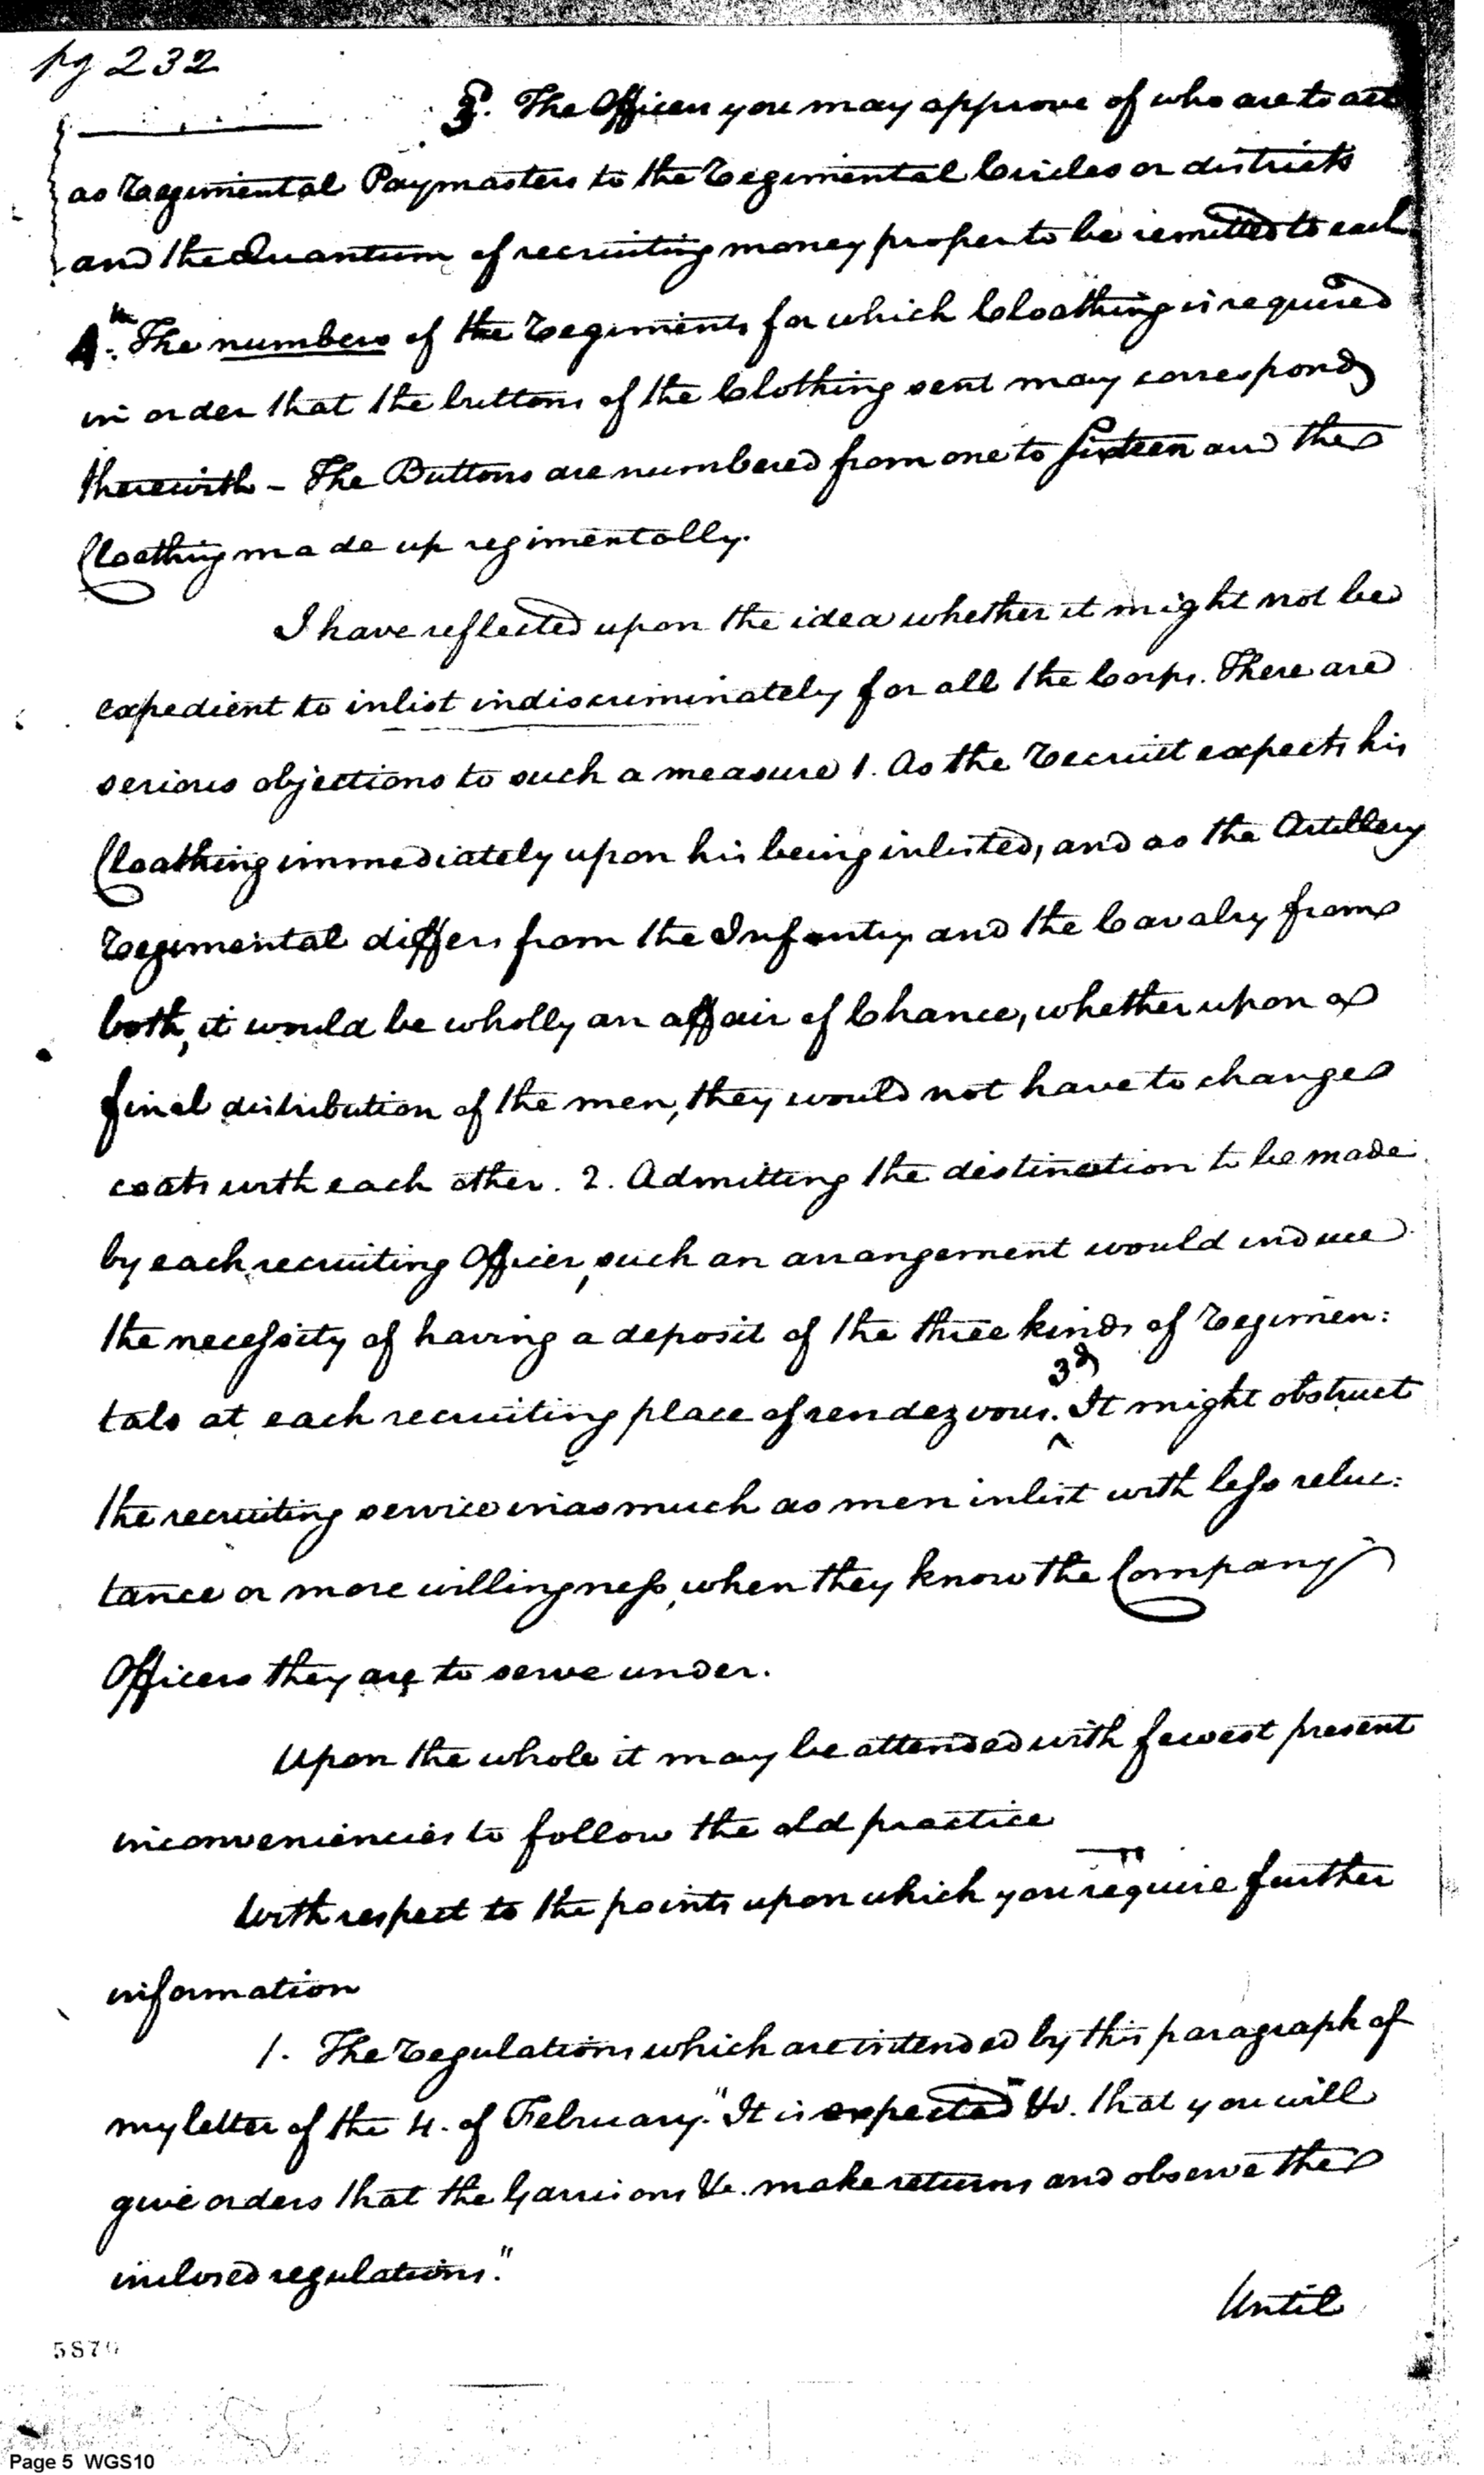 pg 232
3d. The Officers you may approve of who are to act
as Regimental Paymasters to the Regimental Circles or districts
and the Quantum of recruiting money proper to be remitted to each
4th. The numbers of the Regiments for which Cloathing is required
in order that the buttons of the Clothing sent may correspond
therewith – The Buttons are numbered from one to sixteen and the
Cloathing made up regimentally.
I have reflected upon the idea whether it might not be
expedient to inlist indiscriminately for all the Corps. There are
serious objections to such a measure 1. As the Recruit expects his
Cloathing immediately upon his being inlisted, and as the Artillery
Regimental differs from the Infantry and the Cavalry from
both, it would be wholly an affair of Chance, whether upon a
final distribution of the men, they would not have to change
coats with each other. 2. Admitting the destination to be made
by each recruiting Officer, such an arrangement would induce
the necessity of having a deposit of the three kinds of Regimen:
tals at each recruiting place of rendezvous. 3d It might obstruct
the recruiting service in as much as men inlist with less reluc:
tance or more willingness, when they know the Company
Officers they are to serve under.
Upon the whole it may be attended with fewest present
inconveniencies to follow the old practice
With respect to the points upon which you require further
information
1. The Regulations which are intended by this paragraph of
my letter of the 4. of February. "It is expected" &c. that you will
give orders that the Garrisons &c. make returns and observe the
inclosed regulations."
Until
5870
Page 5 WGS10